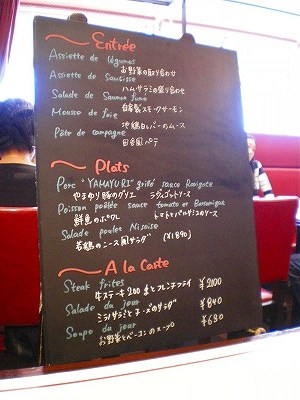 Entrée
Assiette de légumes
お野菜の取り合わせ
Assiette de Saucisse
ハム・サラミの盛り合わせ
Salade de Saumon fumé
自家製スモークサーモン
Mousse de foie
地鶏白レバーのムース
Pâte de campagne
田舎風パテ
Plats
Porc "YAMAYURI" grillé sauce Ravigote
やまゆり豚のグリエ ラヴィゴットソース
Poisson poêlée sauce tomato et Barsamique
鮮魚のポワレ トマトとバルサミコのソース
Salade poulet Nisoise
若鶏のニース風サラダ (¥1890)
A la Carte
Steak frites
牛ステーキ200gとフレンチフライ ¥2100
Salade du jour
ミラノサラミとチーズのサラダ ¥840
Soupe du jour ¥630
お野菜とベーコンのスープ